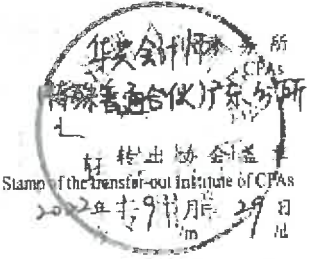 华兴会计师事务所
CPAs
(特殊普通合伙)广东分所
转出协会盖章
Stamp of the transfer-out Institute of CPAs
2022年9月29日
/m /d